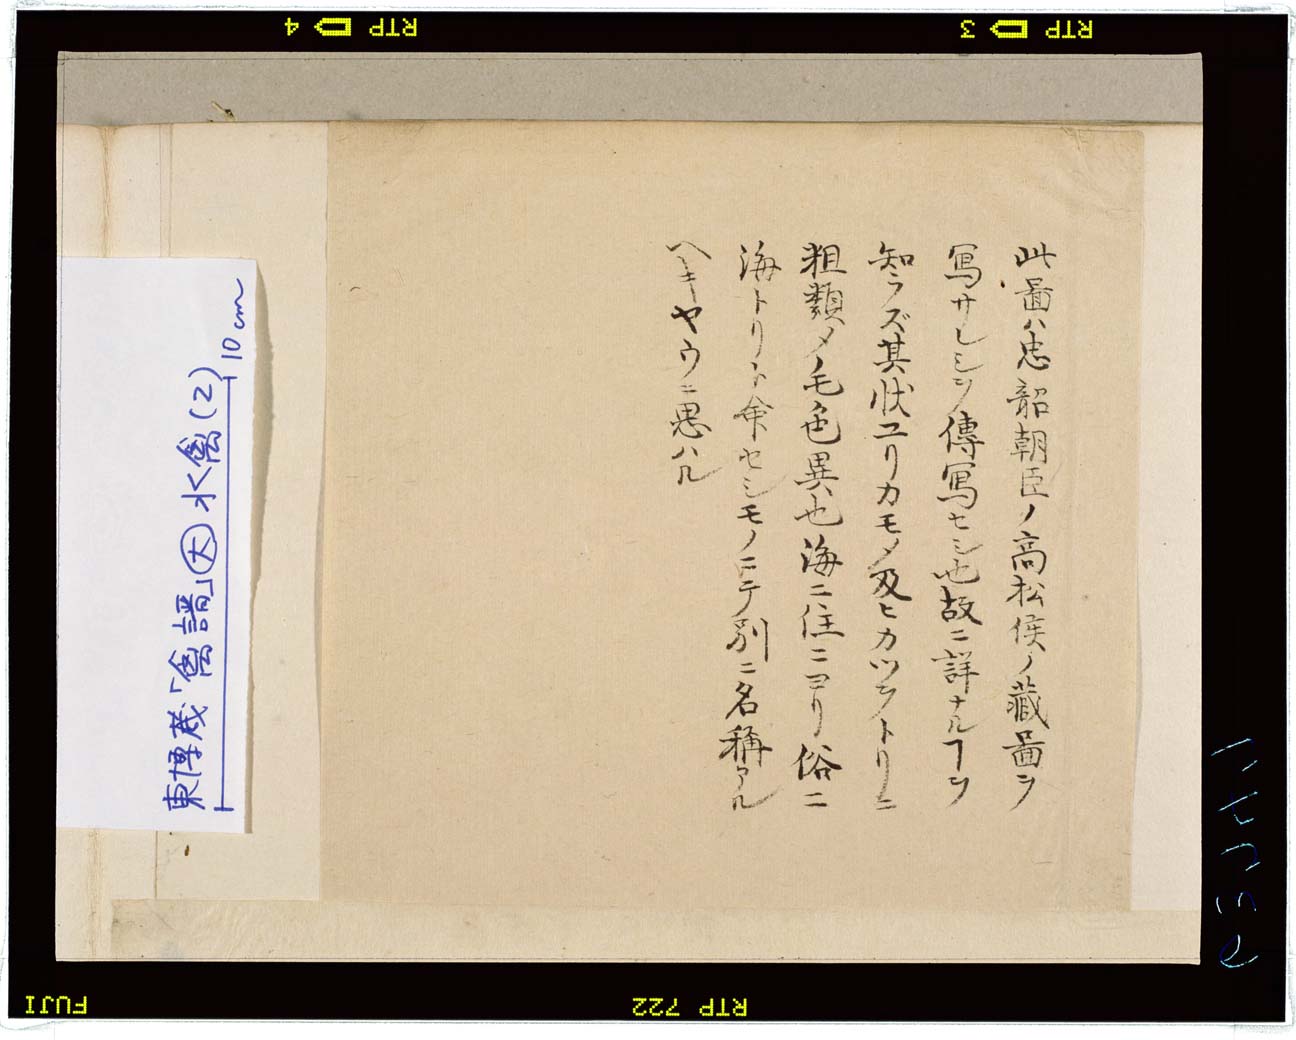 此圖ハ忠韶朝臣ノ高松侯ノ藏圖ヲ
寫サレシヲ傳寫セシ也故ニ詳ナルヿヲ
知ラズ其状ユリカモメ及ヒカツヲトリニ
粗類メノ毛色異也海ニ住ニヨリ俗ニ
海トリト命セシモノニテ別ニ名稱アル
ヘキヤウニ思ハル
東博蔵「禽譜」大 水禽(2)
10cm
RTP 3
RTP 4
FUJI
RTP 722